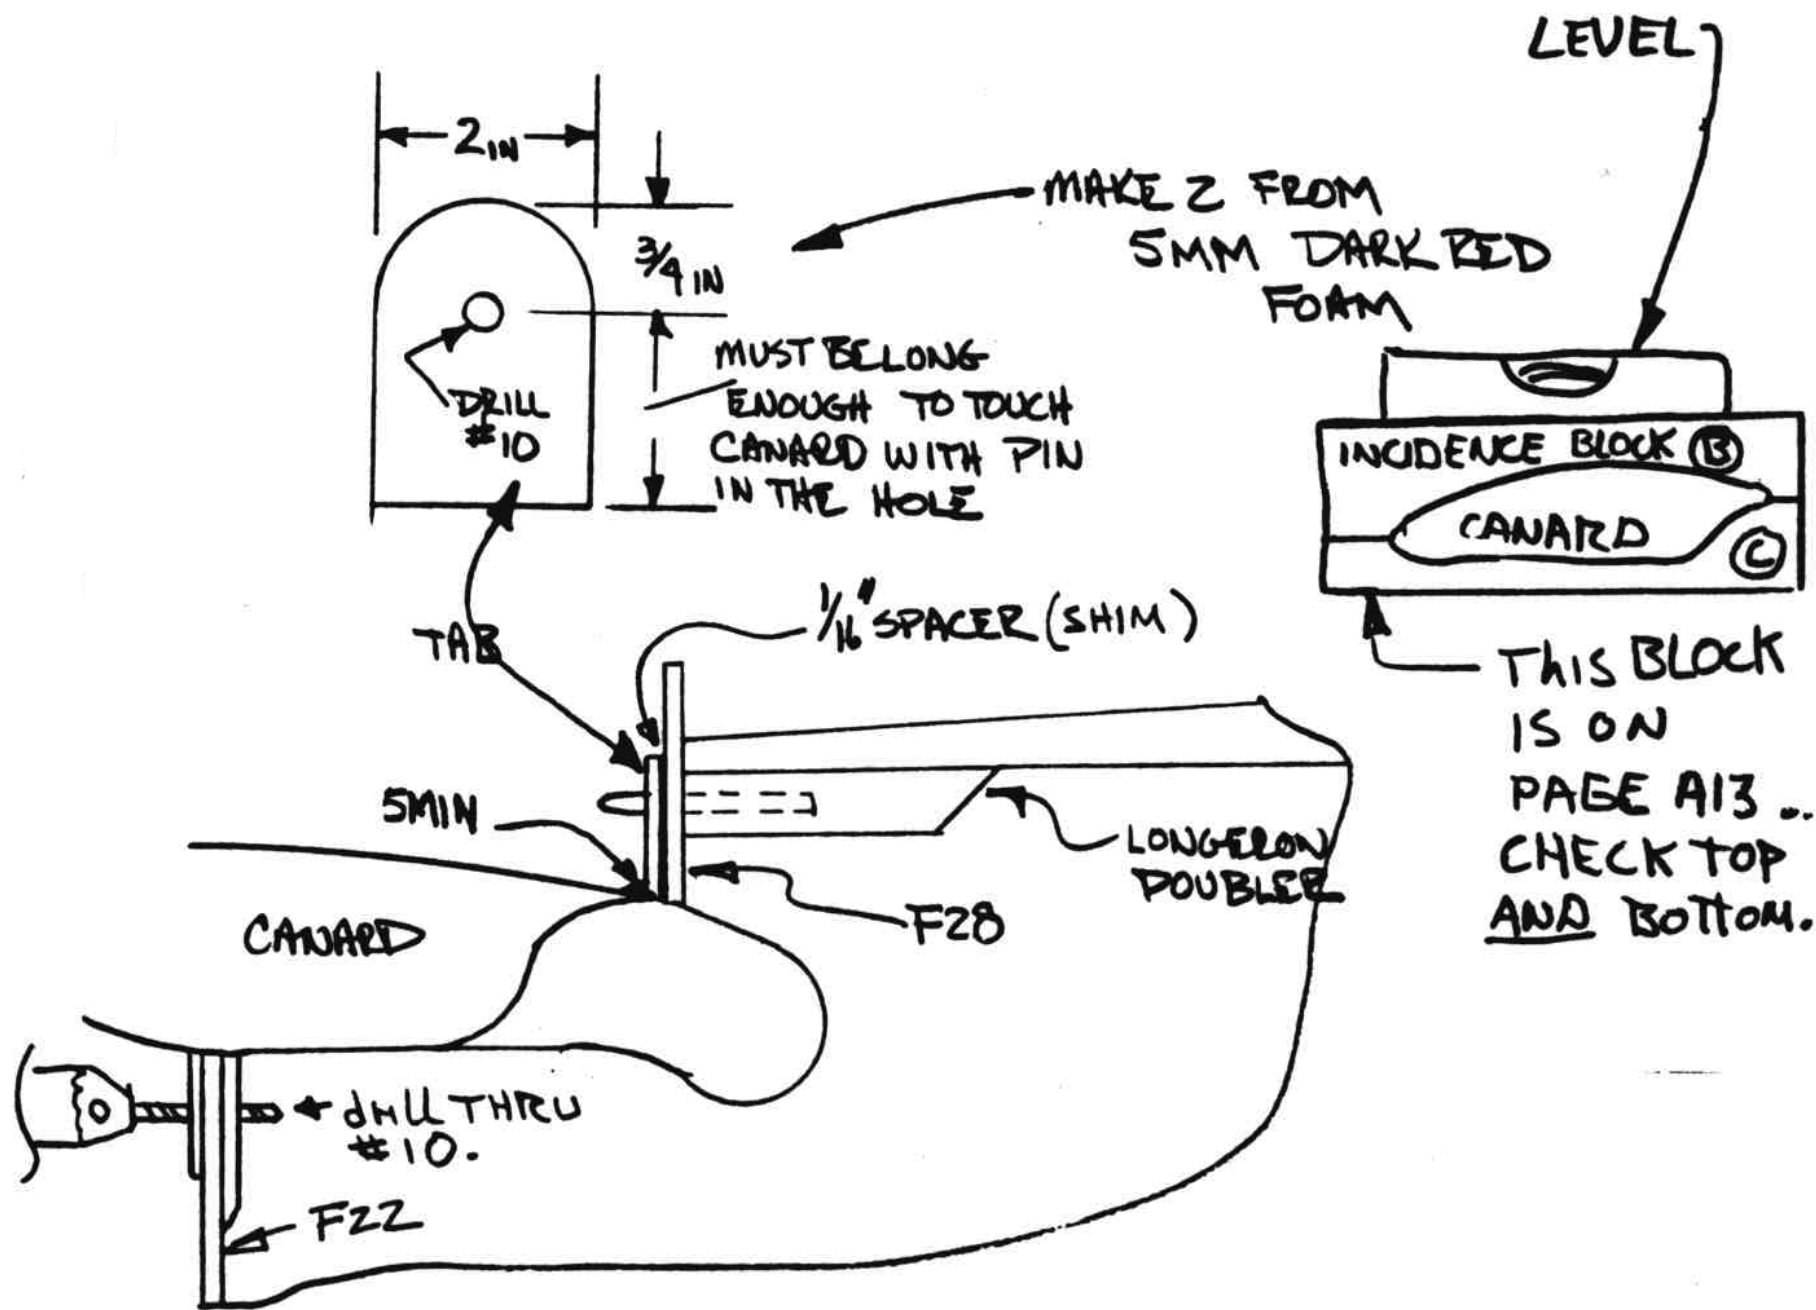 LEVEL
2 IN
3/4 IN
MAKE 2 FROM
5MM DARK RED
FOAM
DRILL
#10
MUST BE LONG
ENOUGH TO TOUCH
CANARD WITH PIN
IN THE HOLE
INCIDENCE BLOCK B
CANARD
C
THIS BLOCK
IS ON
PAGE A13 ..
CHECK TOP
AND BOTTOM.
TAB
1/16" SPACER (SHIM)
5MIN
LONGERON
DOUBLER
F28
CANARD
drill THRU
#10.
F22